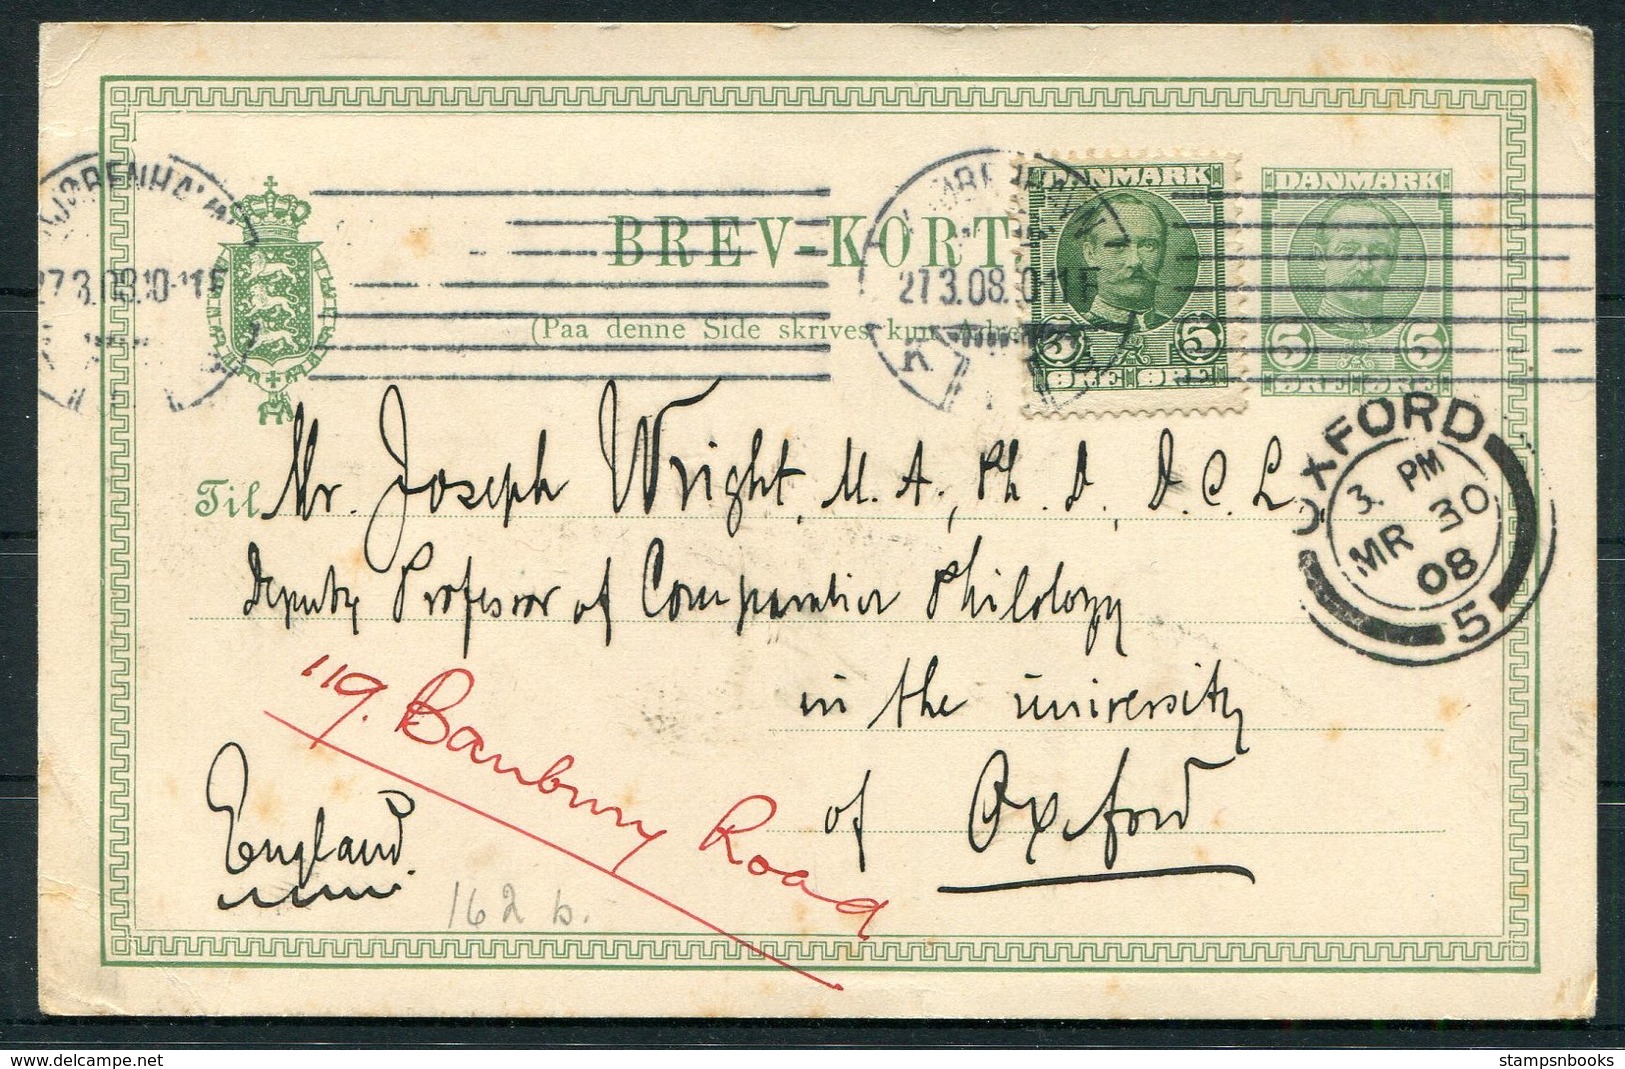 KJØBENHAVN
27.3.08.10-11F
BREV-KORT
KJØBENHAVN
27.3.08. 0-11F
DANMARK
5 5
ØRE ØRE
DANMARK
5 5
ØRE ØRE
(Paa denne Side skrives kun
OXFORD
3. PM
MR 30
08
5
Til Mr. Joseph Wright, M. A., Ph. D., D. C. L.
Deputy Professor of Comparative Philology
in the university
of Oxford
119. Banbury Road
England
162 b.
stampsnbooks